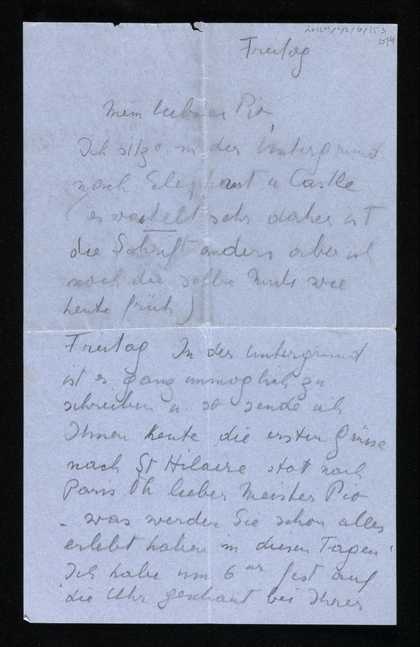 Freitag
Mein lieber Pio,
Ich sitze in der Untergrund
nach Elephant u Castle
(es wackelt sehr daher ist
die Schrift anders aber ich
noch die selbe Muti wie
heute früh)
Freitag In der Untergrund
ist es ganz unmöglich zu
schreiben u. so sende ich
Ihnen heute die ersten Grüsse
nach St Hilaire statt nach
Paris Oh lieber Meister Pio
was werden Sie schon alles
erlebt haben in diesen Tagen!
Ich habe um 6 uhr fest auf
die Uhr geschaut bei Ihrer